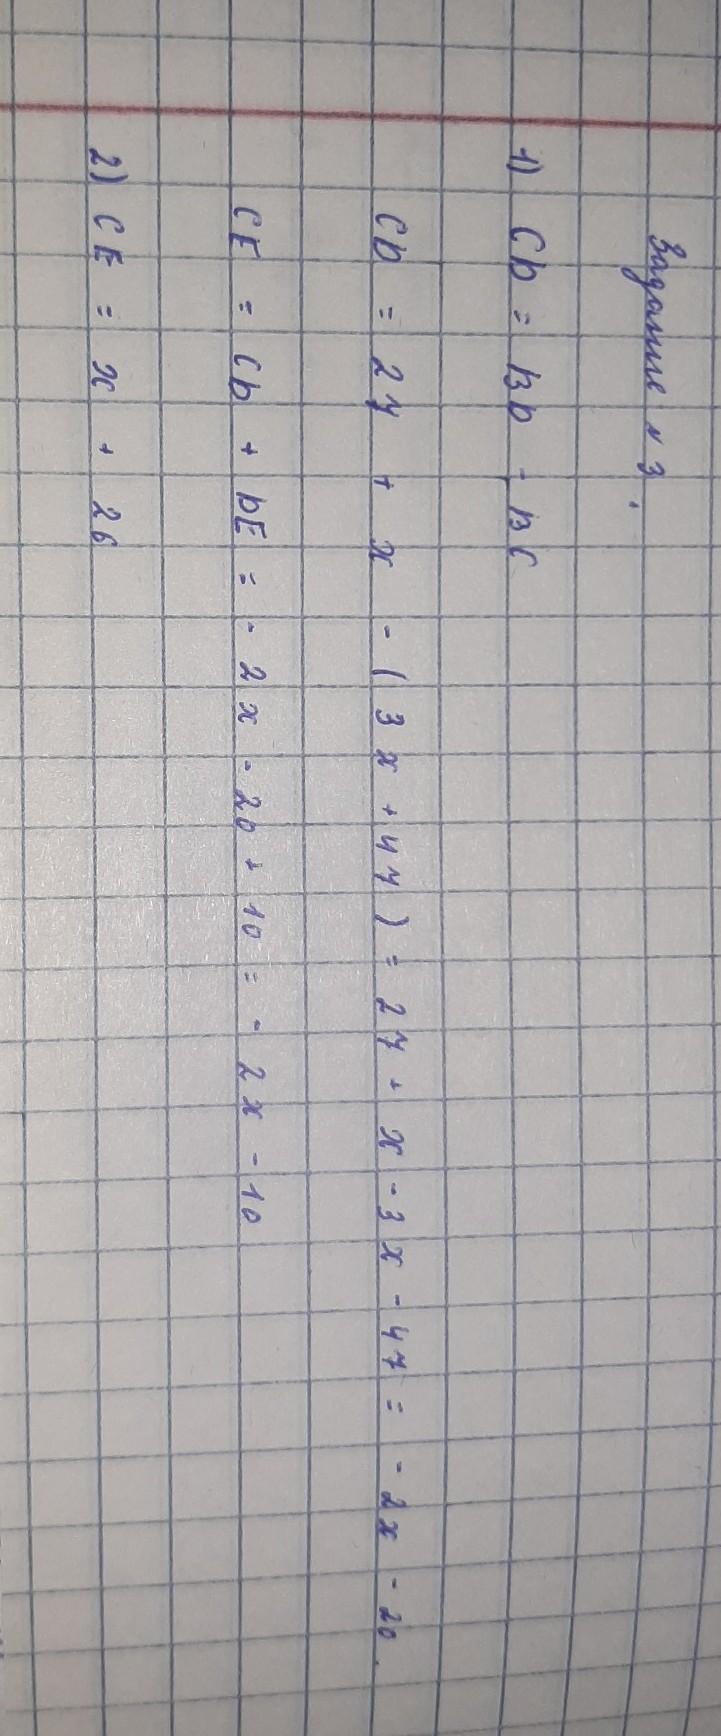 Задание №3.
1) CD = BD - BC
CD = 27 + x - (3x + 47) = 27 + x - 3x - 47 = - 2x - 20.
CE = CD + DE = - 2x - 20 + 10 = - 2x - 10
2) CE = x + 26